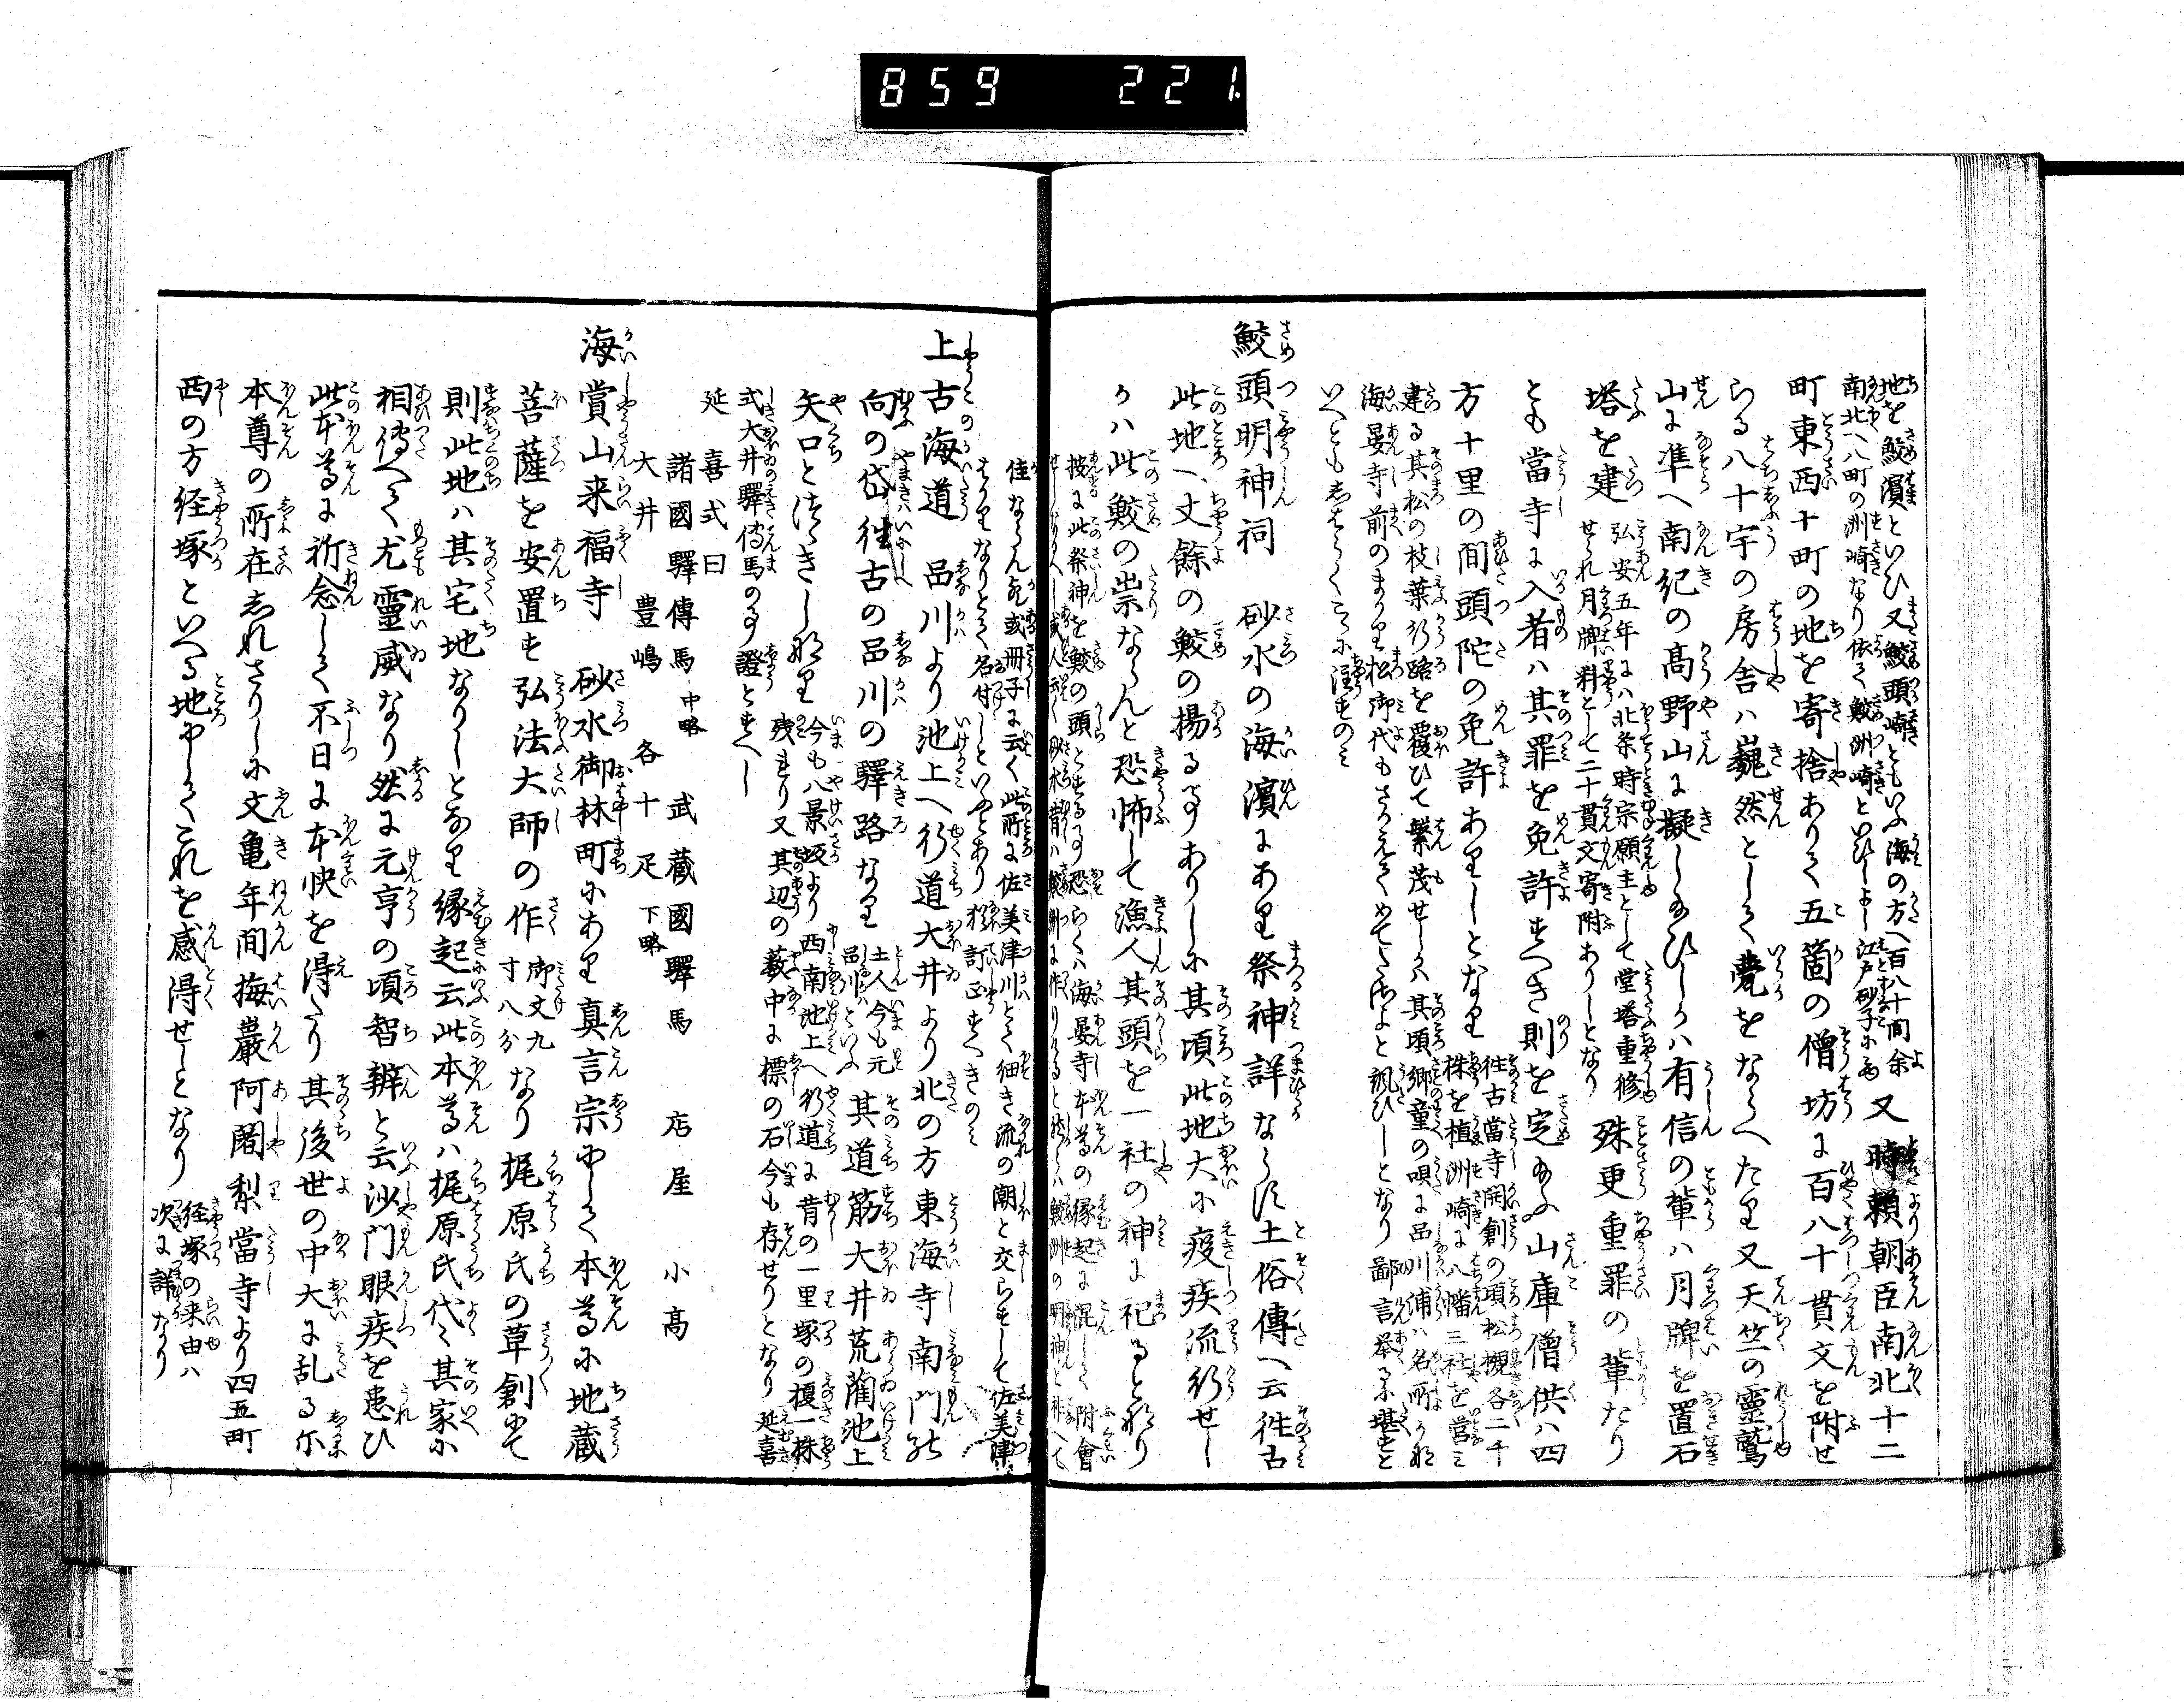 859 221.
地を鮫濱といひ又鮫頭崎ともいふ海の方へ百八十間余
南北へ八町の洲崎なり依て鮫洲崎といひしよし江戸砂子にも又時頼朝臣南北十二
町東西十町の地を寄捨ありて五箇の僧坊に百八十貫文を附せ
らる八十宇の房舎ハ巍然として甍をならへたり又天竺の靈鷲
山に準へ南紀の髙野山に擬し給ひしかハ有信の輩ハ月牌を置石
塔を建弘安五年にハ北条時宗願主として堂塔重修
せられ月牌料として二十貫文寄附ありしとなり殊更重罪の輩たり
とも當寺に入者ハ其罪を免許すへき則を定給ふ山庫僧供ハ四
方十里の間頭陀の免許ありしとなり徃古當寺開創の頃松櫬各二千
株を植洲崎に八幡三社を営ミ
建る其松の枝葉行路を覆ひて繁茂せしかハ其頃郷童の唄に品川浦ハ名所かな
海晏寺前のまかり松御代もさかえてめてたさよと諷ひしとなり鄙言挙るに堪すと
いへとも志はらくこゝに注すのミ
鮫頭明神祠 砂水の海濱にあり祭神詳ならす土俗傳へ云徃古
此地へ丈餘の鮫の揚る事ありしに其頃此地大に疫疾流行せし
かハ此鮫の祟ならんと恐怖して漁人其頭を一社の神に祀ると云り
按に此祭神を鮫の頭とする事恐らくハ海晏寺本尊の縁起に混して附會
佳ならん歟或冊子に云く此所に佐美津川とて細き流の潮と交らすして佐美津
はかりなりとて名付しといふとあり猶訂正すへきのミ
上古海道 品川より池上へ行道大井より北の方東海寺南門の
向の岱徃古の品川の驛路なり土人今も元
品川といふ其道筋大井荒藺池上
矢口とつゝきしなり今も八景坂より西南池上へ行道に昔の一里塚の榎一株
残れり又其辺の藪中に標の石今も存せりとなり延喜
式大井驛傳馬の事證とすへし
延喜式曰
諸國驛傳馬中略 武蔵國驛馬 店屋 小髙
大井 豊嶋 各十疋下略
海賞山来福寺 砂水御林町にあり真言宗にして本尊に地蔵
菩薩を安置す弘法大師の作御丈九
寸八分なり梶原氏の草創にて
則此地ハ其宅地なりしとなり縁起云此本尊ハ梶原氏代々其家に
相傳へて尤靈威なり然に元亨の頃智辨と云沙門眼疾を患ひ
此本尊に祈念して不日に本快を得たり其後世の中大に乱る尓
本尊の所在志れさりしに文亀年間梅巖阿闍梨當寺より四五町
西の方経塚といへる地にしてこれを感得せしとなり経塚の来由ハ
次に詳なり